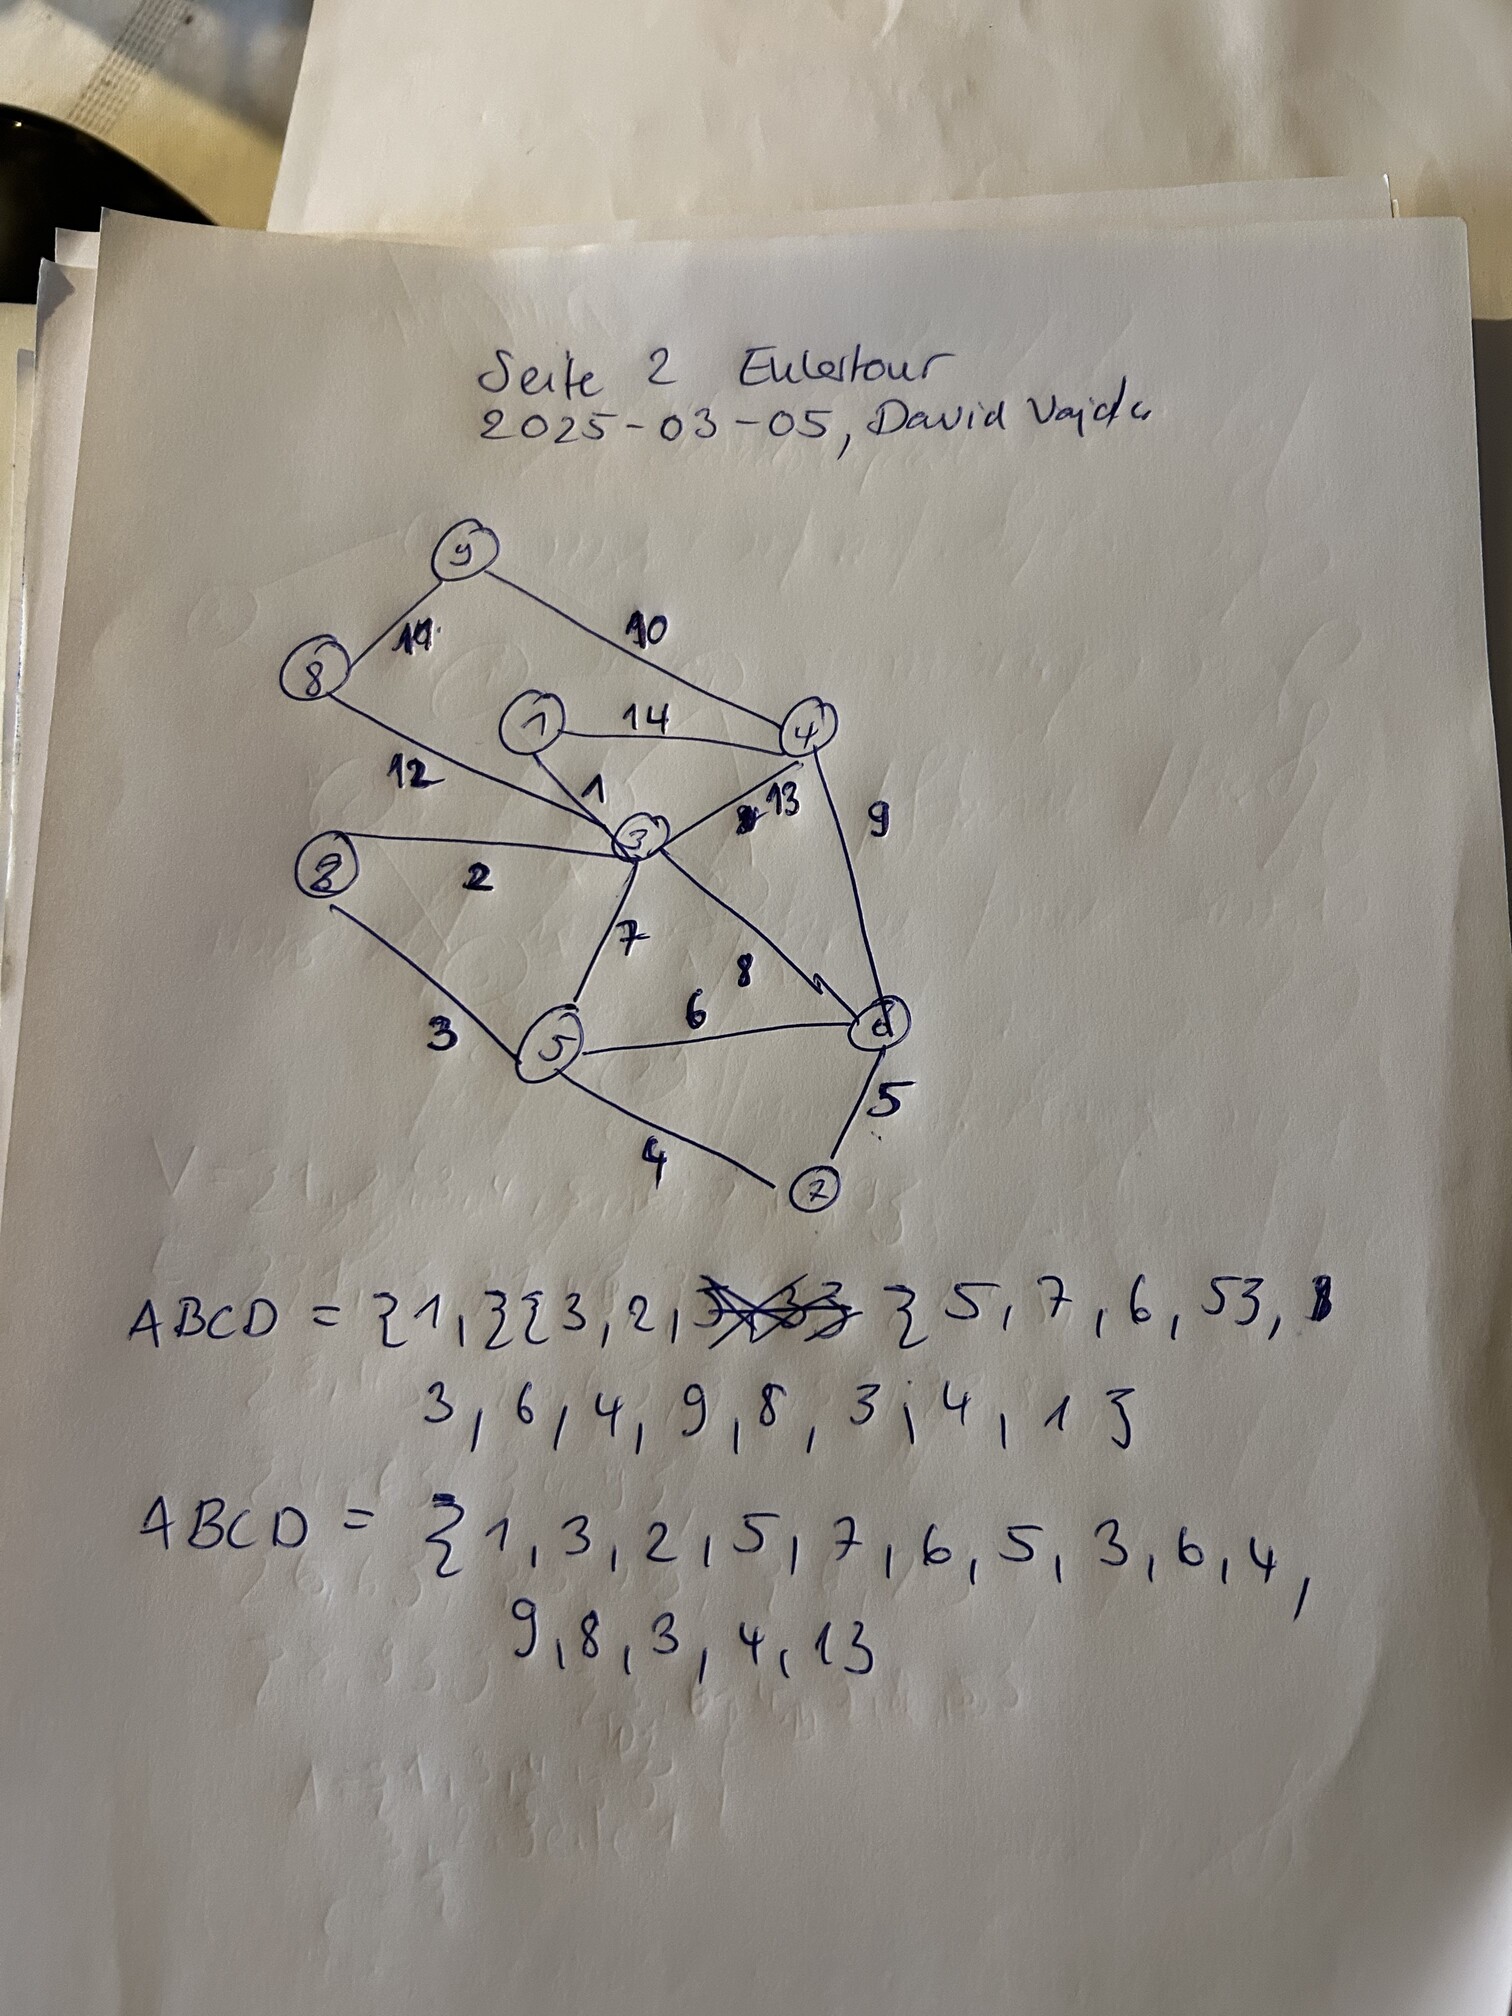 Seite 2 Eulertour
2025-03-05, David Vajda
9
11
10
8
1
14
4
12
1
13
9
3
2
2
7
8
3
6
5
6
5
4
7
ABCD = {1,}{3, 2, } 5, 7, 6, 5},
3, 6, 4, 9, 8, 3, 4, 1}
ABCD = {1, 3, 2, 5, 7, 6, 5, 3, 6, 4,
9, 8, 3, 4, 1}